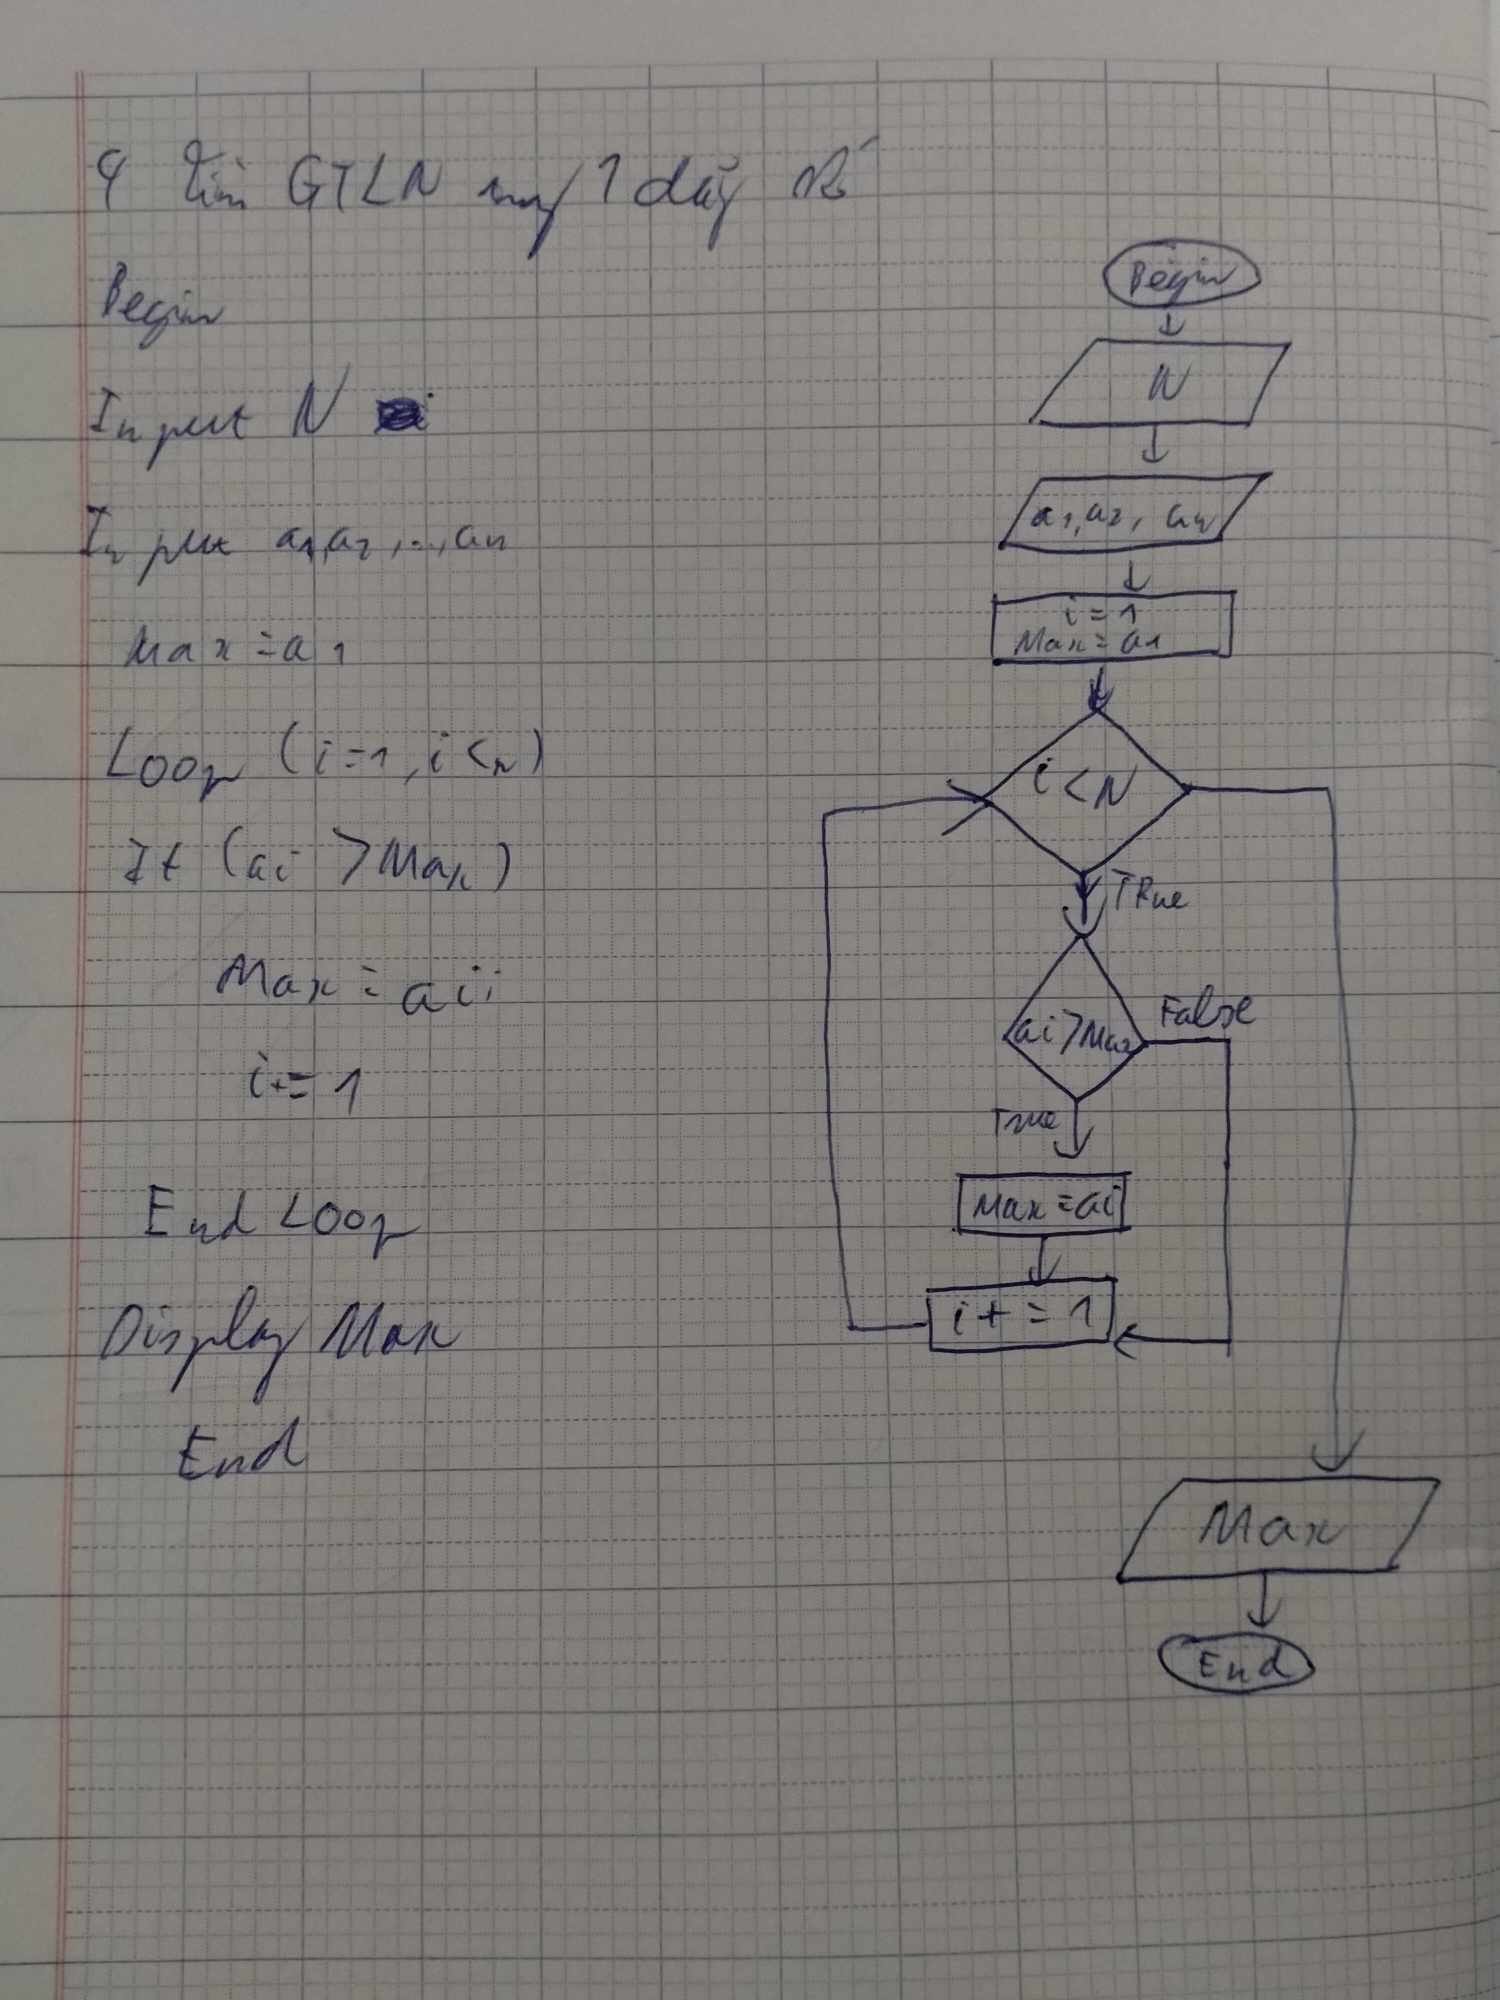 4 Tìm GTLN trong 1 dãy số
Begin
Input N
Input a1,a2,...,an
Max=a1
Loop (i=1,i<n)
If (ai >Max)
Max=ai;
i+=1
End Loop
Display Max
End
Begin
N
a1,a2, an
i=1
Max=a1
i<N
TRue
ai>Max
False
True
Max=ai
i+=1
Max
End